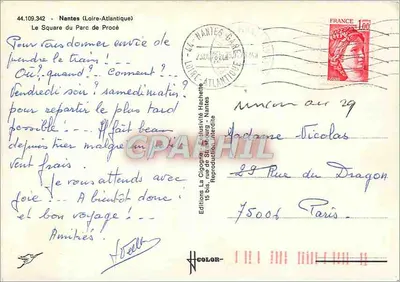 44.109.342 - Nantes (Loire-Atlantique)
Le Square du Parc de Procé
Pour vous donner envie de
prendre le train! ---
Où? quand? -- Comment? ---
Vendredi soir? samedi matin?
pour repartir le plus tard
possible! ---- Il fait beau
depuis hier malgré un
vent frais
Je vous attends avec
joie --- A bientôt donc
et bon voyage! --
Amitiés.
Editions La Cigogne
15 bis, rue - Nantes
Reproduction interdite
44 - NANTES GARE
LOIRE-ATLANTIQUE
FRANCE
1,00
au 29
Madame Nicolas
29 Rue du Dragon
75006 Paris.
CPARAMA
COLOR